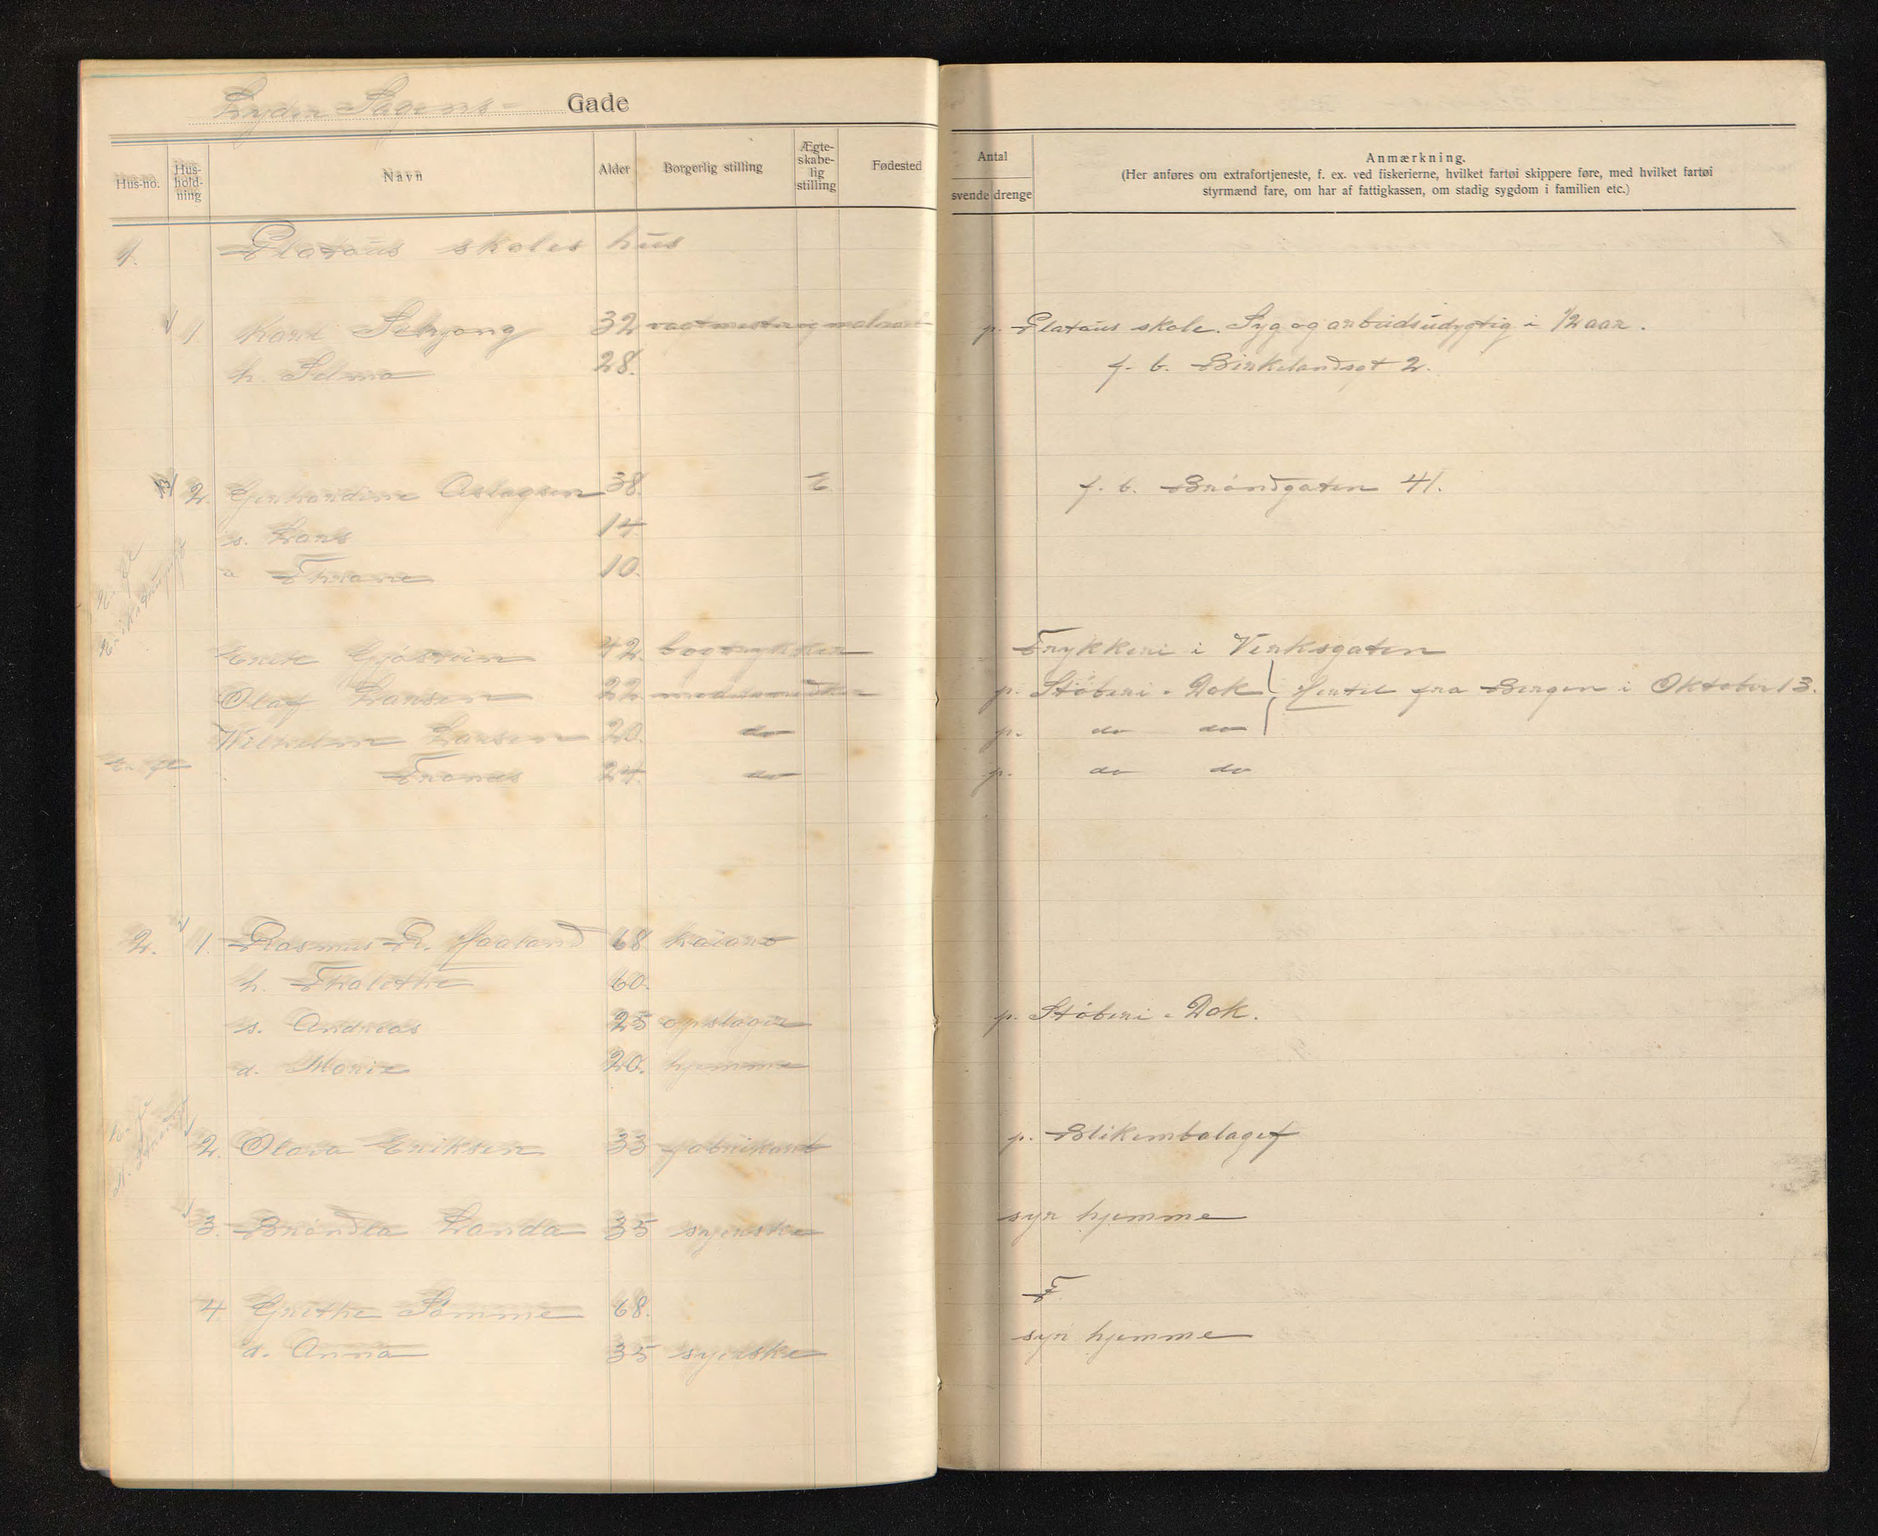 Lyder Sagens- Gade
Hus-no. Hus-hold-ning Navn Alder Borgerlig stilling Ægte-skabe-lig stilling Fødested
1. Platous skoles hus
1. Karl 32 vagtmester og
h. Selma 28.
2. Gerhardine Aslagsen 38. E.
s. Lars 14
" Thrane 10.
42 bogtrykker
Olaf Larsen 22
Wilhelm Larsen 20 do
Er. fl. 24 do
2. 1. Rasmus R. Haaland 68
h. Thalethe 60.
s. Andreas 25 opslager
d. Marie 20. hjemme
2. Olava Eriksen 33 fabrikarb
3. Brøndla Landa 35 syerske
4. Grethe Sømme 68.
d. Anna 35 syerske
Antal
svende drenge
Anmærkning.
(Her anføres om extrafortjeneste, f. ex. ved fiskerierne, hvilket fartøi skippere føre, med hvilket fartøi
styrmænd fare, om har af fattigkassen, om stadig sygdom i familien etc.)
p. Platous skole. Syg og arbeidsudygtig i 1/2 aar.
f. b. Birkelandsgt 2.
f. b. Brøndgaten 41.
Trykkeri i Verksgaten
p. Støberi & Dok Hertil fra Bergen i Oktober 13.
p. do do
p. do do
p. Støberi & Dok.
p. Blikembalagef
syr hjemme
F
syr hjemme